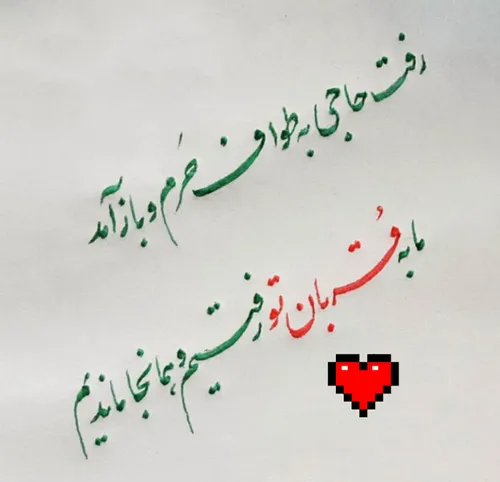 رفت حاجی به طواف حَرم و باز آمد
ما به قُربان تو رفتیم و همانجا ماندیم